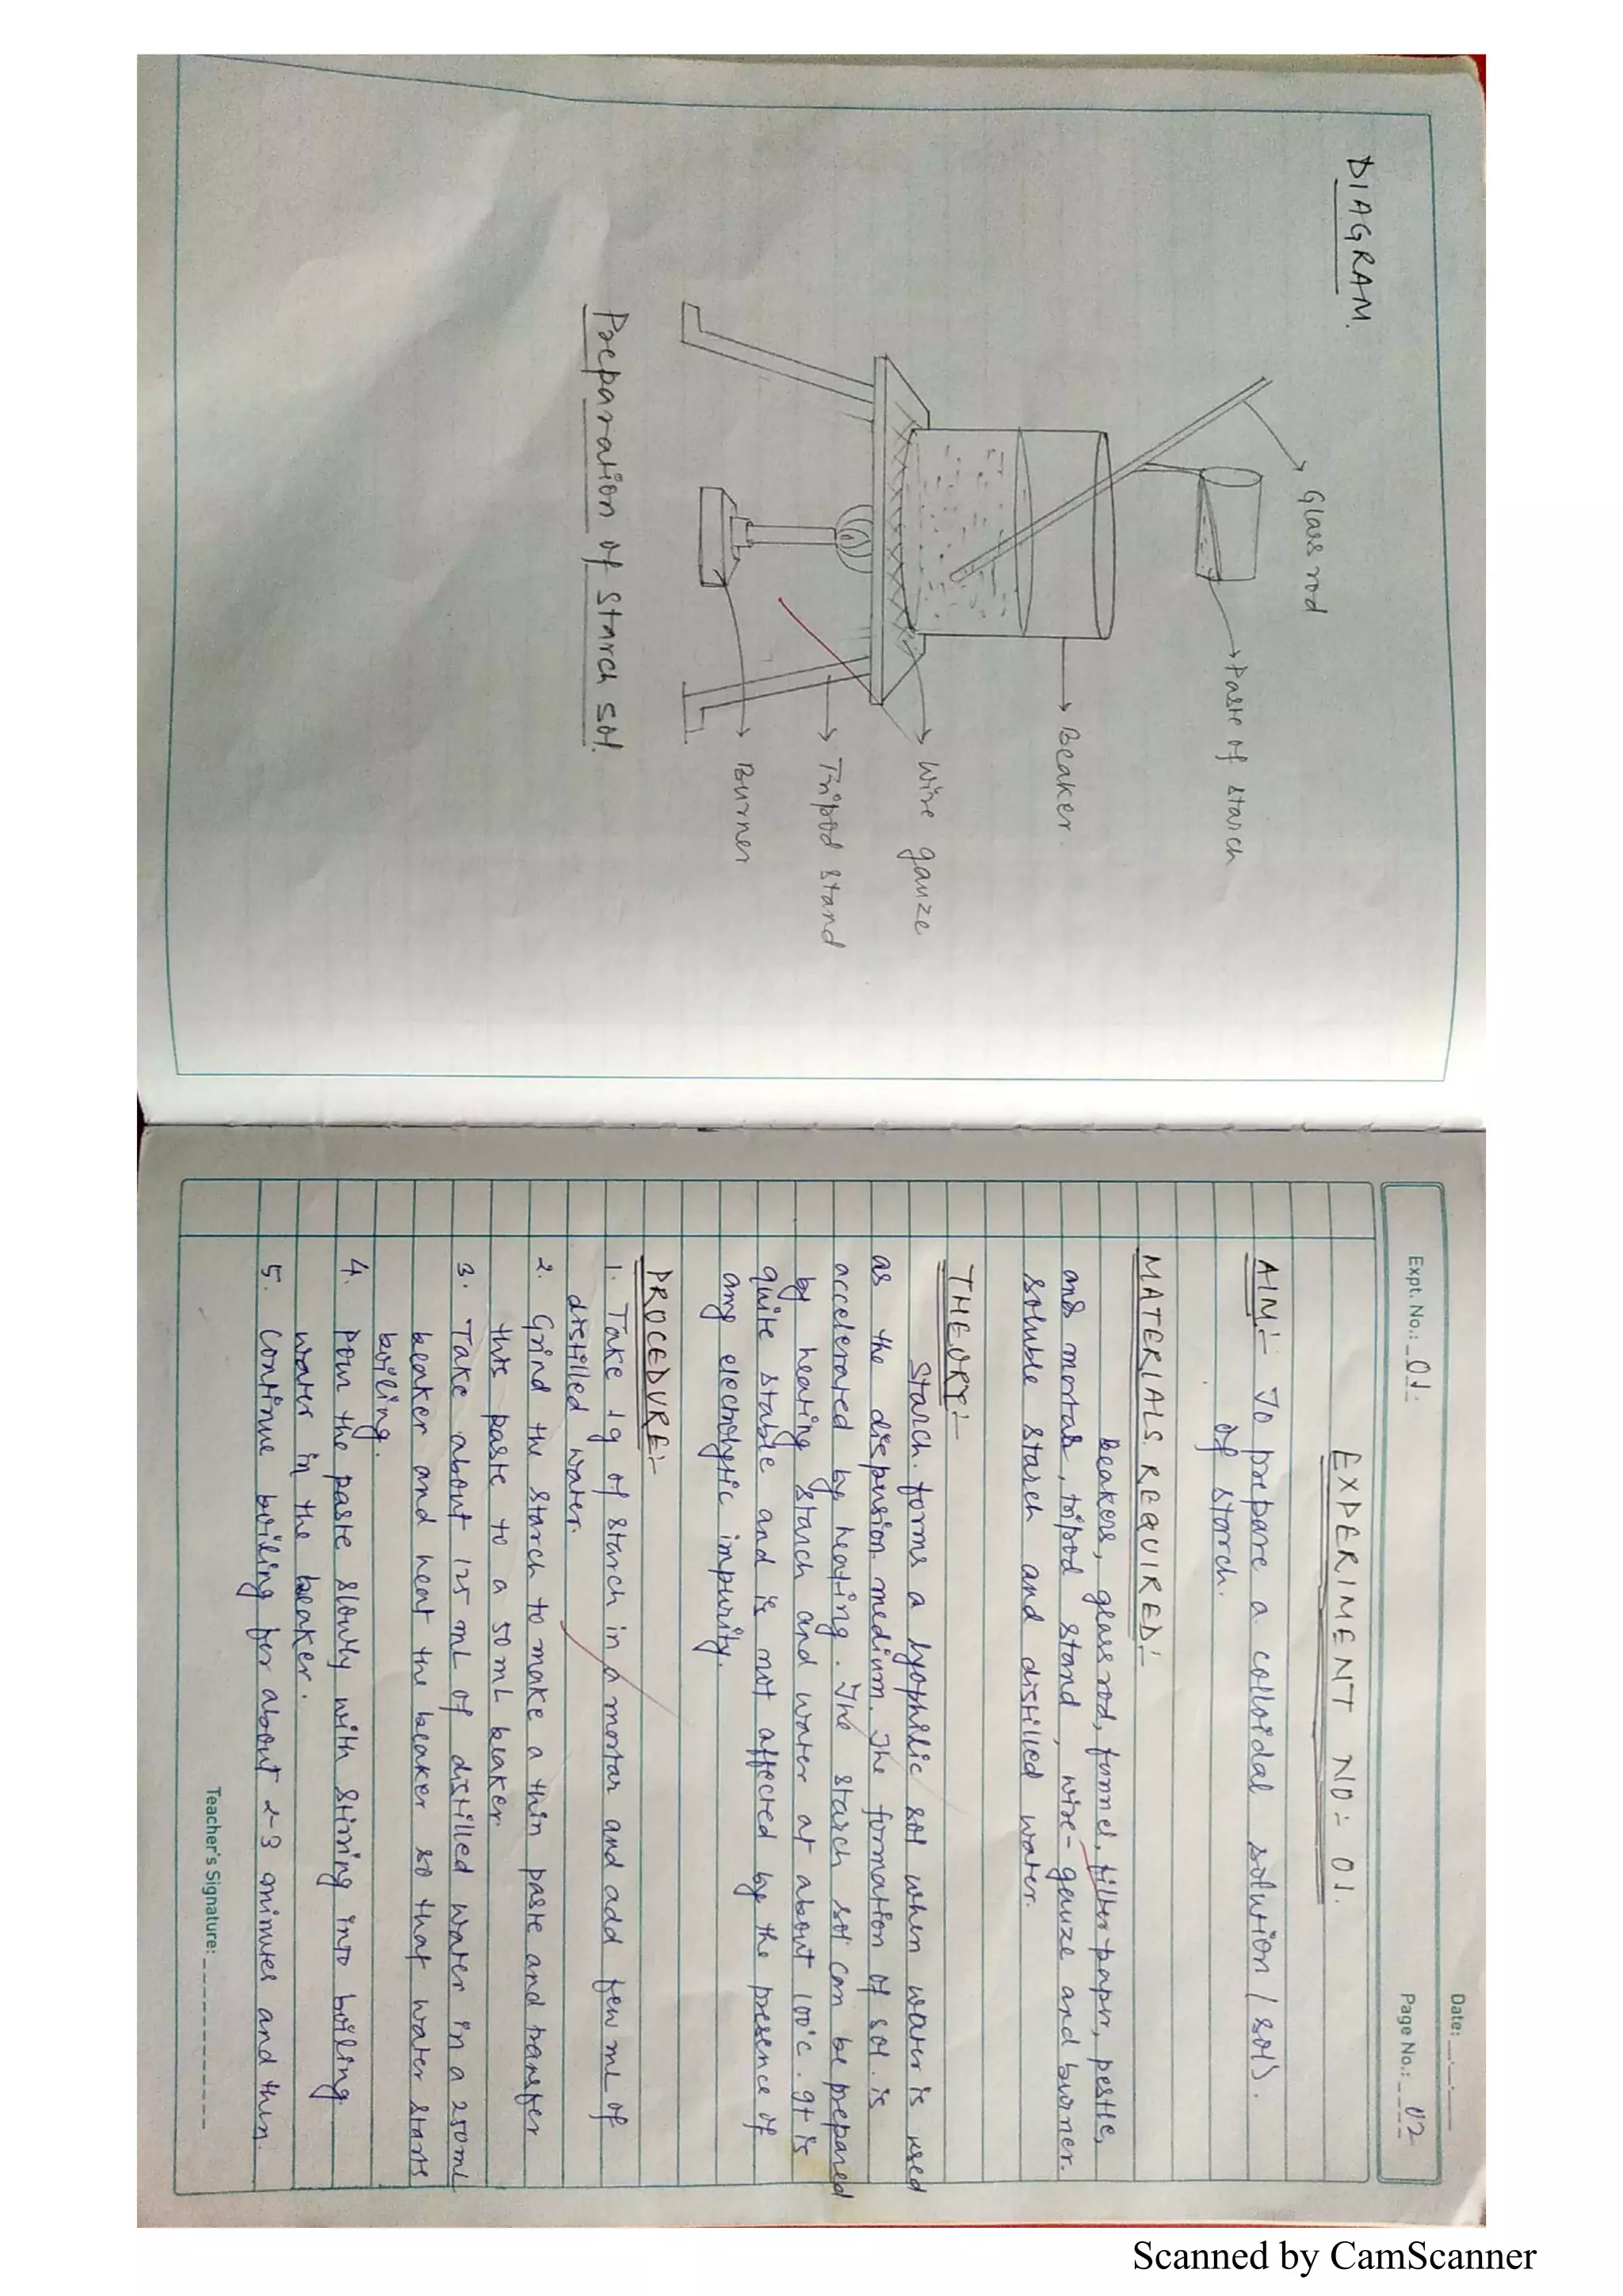 DIAGRAM.
Glass rod
Paste of starch
Beaker
Wire gauze
Tripod stand
Burner
Preparation of starch sol.
Date:
Expt. No.: 01.
Page No.: 02
EXPERIMENT NO:- 01.
AIM:- To prepare a colloidal solution (sol).
of starch.
MATERIALS REQUIRED:-
Beakers, glass rod, funnel, filter-paper, pestle,
and mortar, tripod stand, wire-gauze and burner.
soluble starch and distilled water.
THEORY:-
Starch forms a lyophilic sol when water is used
as the dispersion medium. The formation of sol. is
accelerated by heating. The starch sol can be prepared
by heating starch and water at about 100°c. It is
quite stable and is not affected by the presence of
any electrolytic impurity.
PROCEDURE:-
1. Take 1g of starch in a mortar and add few mL of
distilled water.
2. Grind the starch to make a thin paste and transfer
this paste to a 50 mL beaker.
3. Take about 125 mL of distilled water in a 250 mL
beaker and heat the beaker so that water starts
boiling.
4. Pour the paste slowly with stirring into boiling
water in the beaker.
5. Continue boiling for about 2-3 minutes and then.
Teacher's Signature:
Scanned by CamScanner